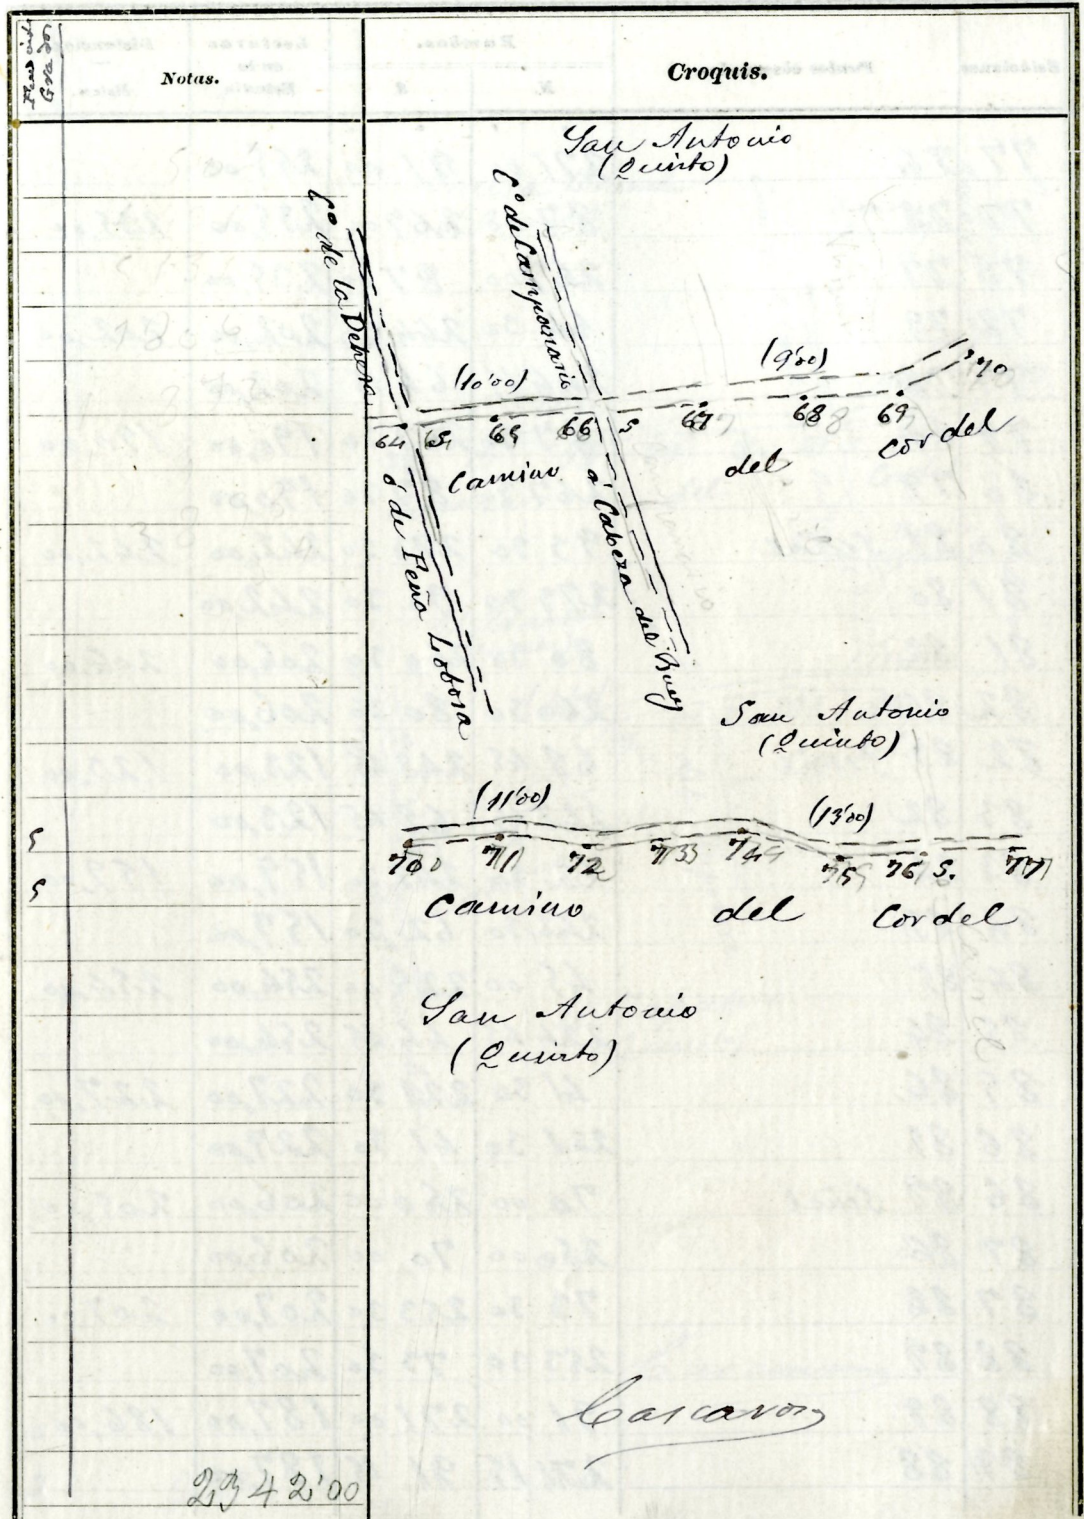 Notas.
Croquis.
San Antonio
(Quinto)
Cº de la Dehesa
Cº de Campanario
(10'00)
(9'00)
64 64 65 66 S 67 68 69 70
Camino del Cordel
ó de Peña Lobosa
a Cabeza del Buey
San Antonio
(Quinto)
(11'00)
(13'00)
70 71 72 73 74 75 76 S. 77
Camino del Cordel
San Antonio
(Quinto)
2342'00